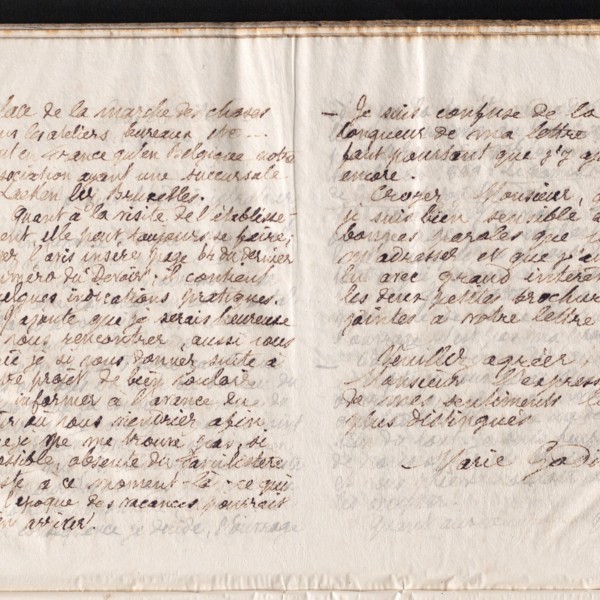 place de la marche des choses
ateliers bureaux etc ---
en France qu'en Belgique notre
sociation ayant une succursale
Laeken lez Bruxelles.
Quant à la visite de l'établisse-
ment, elle peut toujours se faire;
l'avis inséré page 64 du dernier
numéro du "Devoir"; il contient
quelques indications pratiques.
J'ajoute que je serais heureuse
vous rencontrer, aussi vous
je si vous donner suite à
projet, de bien vouloir
informer à l'avance du
où vous viendriez afin
que je ne me trouve pas, si
possible, absente du Familistère
à ce moment-là - ce qui
l'époque des vacances pourrait
arriver.
— Je suis confuse de la
longueur de ma lettre
faut pourtant que j'y aj
encore.
Croyez, Monsieur,
je suis bien sensible a
bonnes paroles que
m'adressez et que j'ai
lu avec grand intérêt
les deux petites brochur
jointes à votre lettre
Veuillez agréer
Monsieur l'express
de mes sentiments le
plus distingués
Marie Godi